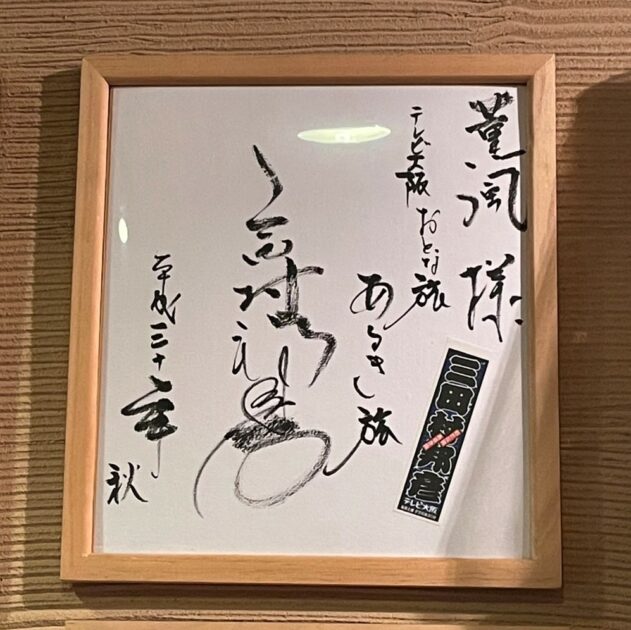 薫風 様
テレビ大阪 おとな旅
あるき旅
三田村邦彦
平成三十年 秋
三田村邦彦
テレビ大阪